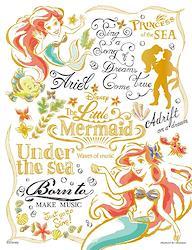 PRINCESS
of the SEA
Sing
a Song
of
Dreams
Come True
Ariel
Disney
The Little
Mermaid
Adrift
on a dream
Under
the sea
Waves of music
Born to
MAKE MUSIC